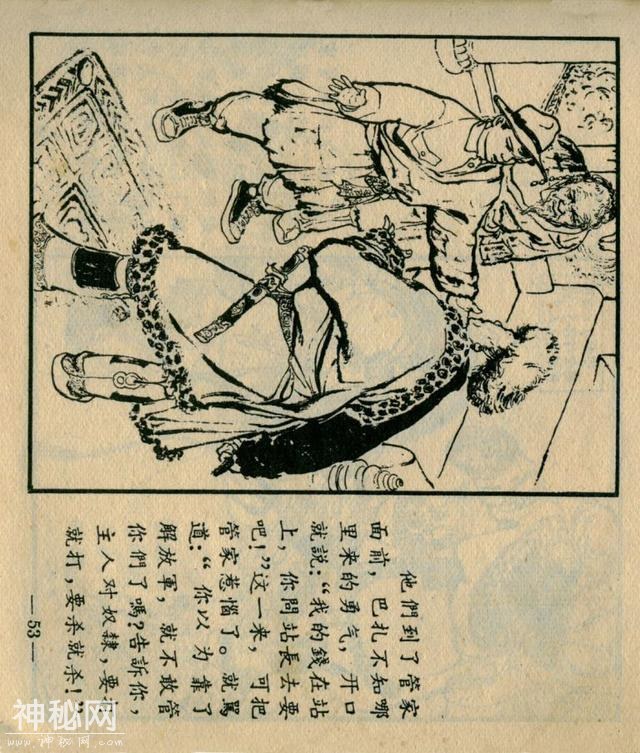 他們到了管家
面前，巴扎不知哪
里来的勇气，开口
就說：“我的錢在站
上，你問站長去要
吧！”这一来，可把
管家惹惱了。就駡
道：“你以为靠了
解放軍，就不敢管
你們了嗎？告訴你，
主人对奴隸，要
就打，要杀就杀！”
—53—
神秘网